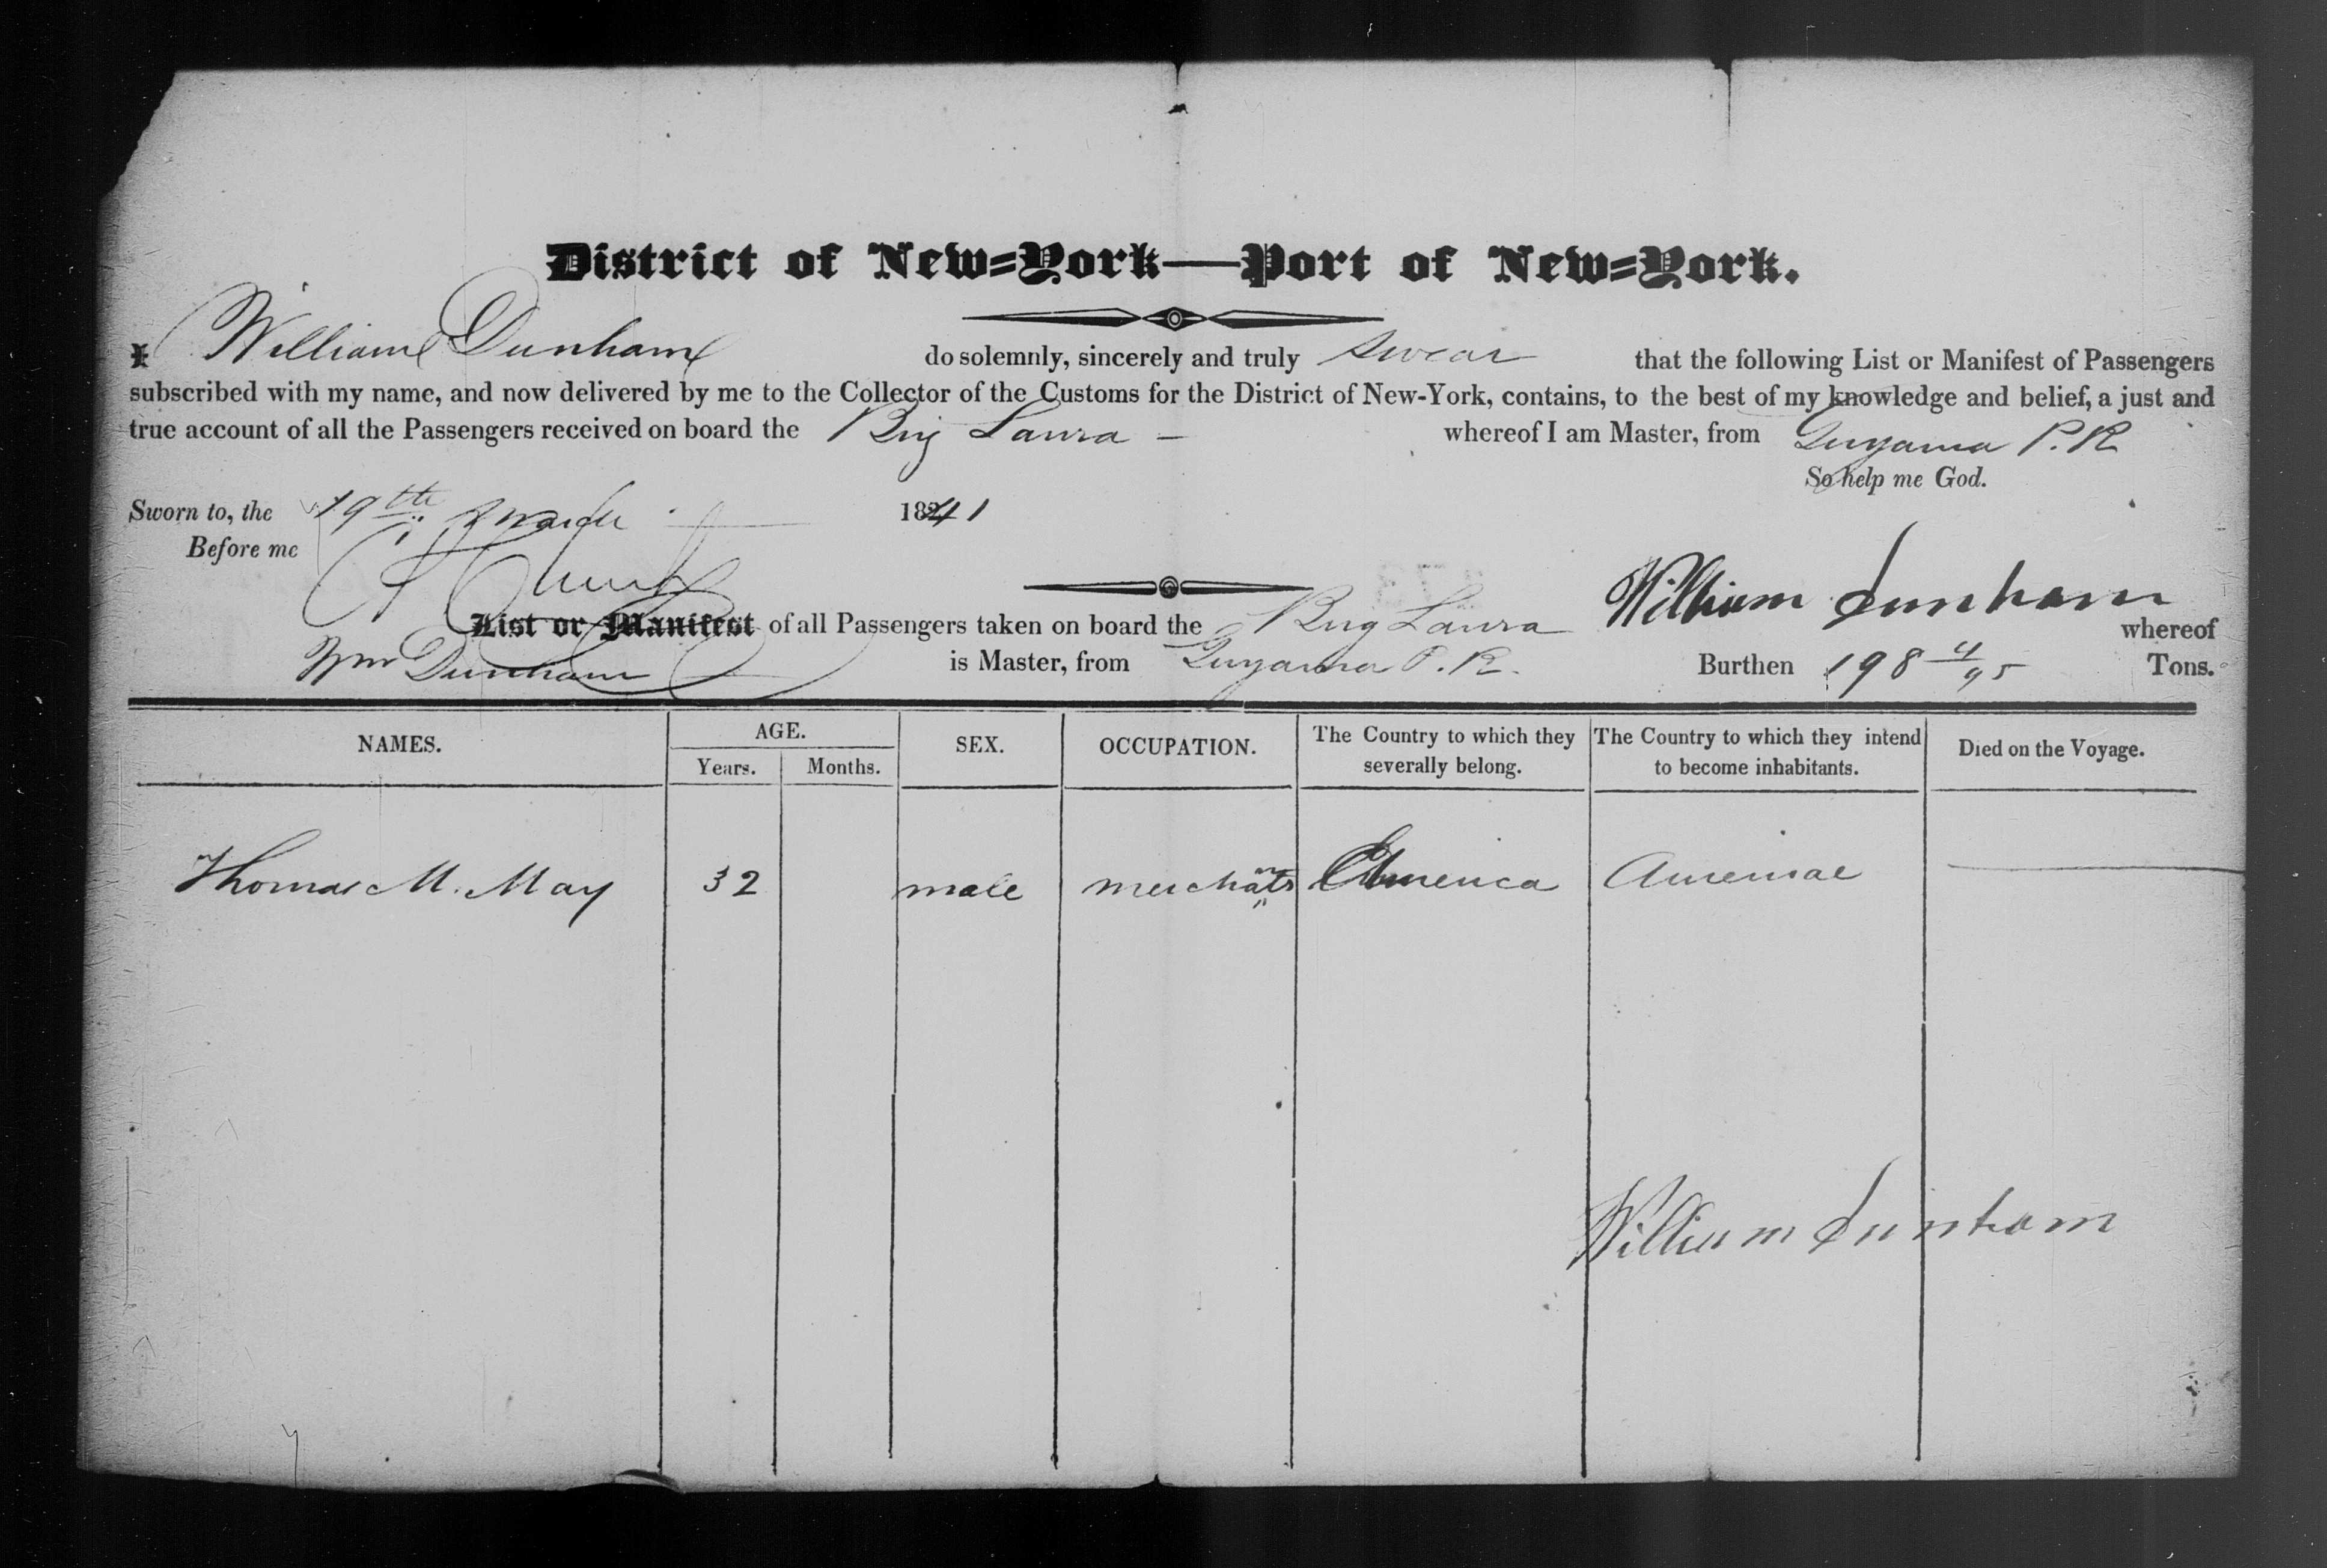 District of New=York—Port of New=York.
I William Dunham do solemnly, sincerely and truly swear that the following List or Manifest of Passengers
subscribed with my name, and now delivered by me to the Collector of the Customs for the District of New-York, contains, to the best of my knowledge and belief, a just and
true account of all the Passengers received on board the Brig Laura – whereof I am Master, from Guyama P.R
So help me God.
Sworn to, the 19th March 1841
Before me
William Dunham
List or Manifest of all Passengers taken on board the Brig Laura whereof
Wm Dunham is Master, from Guyama P.R. Burthen 198 4/95 Tons.
NAMES. AGE. SEX. OCCUPATION. The Country to which they severally belong. The Country to which they intend to become inhabitants. Died on the Voyage.
Years. Months.
Thomas M. May 32 male merchant America America
William Dunham